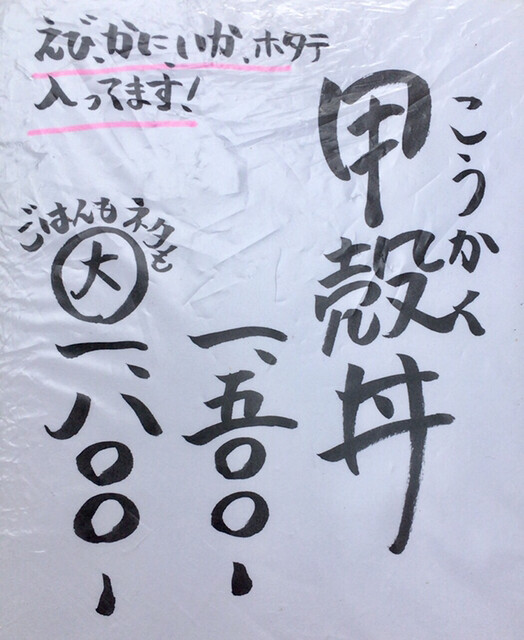 えび、かに、いか、ホタテ
入ってます!
こうかく
甲殻丼
一、五〇〇-
ごはんもネタも
大
一、八〇〇-